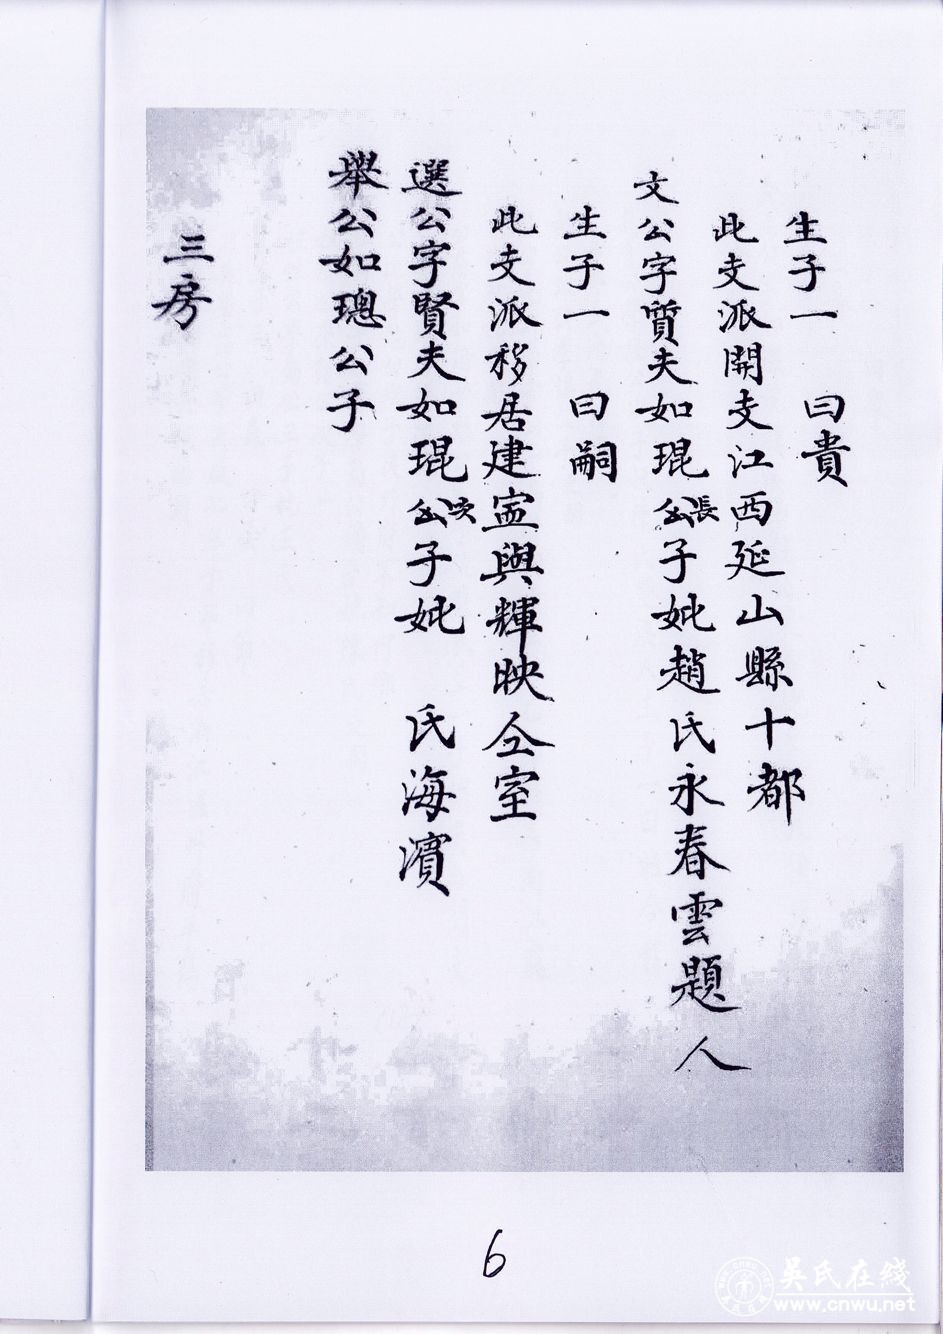 生子一 曰貴
此支派開支江西延山縣十都
文公字質夫如琨公長子妣趙氏永春雲題人
生子一 曰嗣
此支派移居建寍與輝映仝室
選公字賢夫如琨公次子妣 氏海濱
舉公如璁公子
三房
6
吳氏在綫
www.cnwu.net